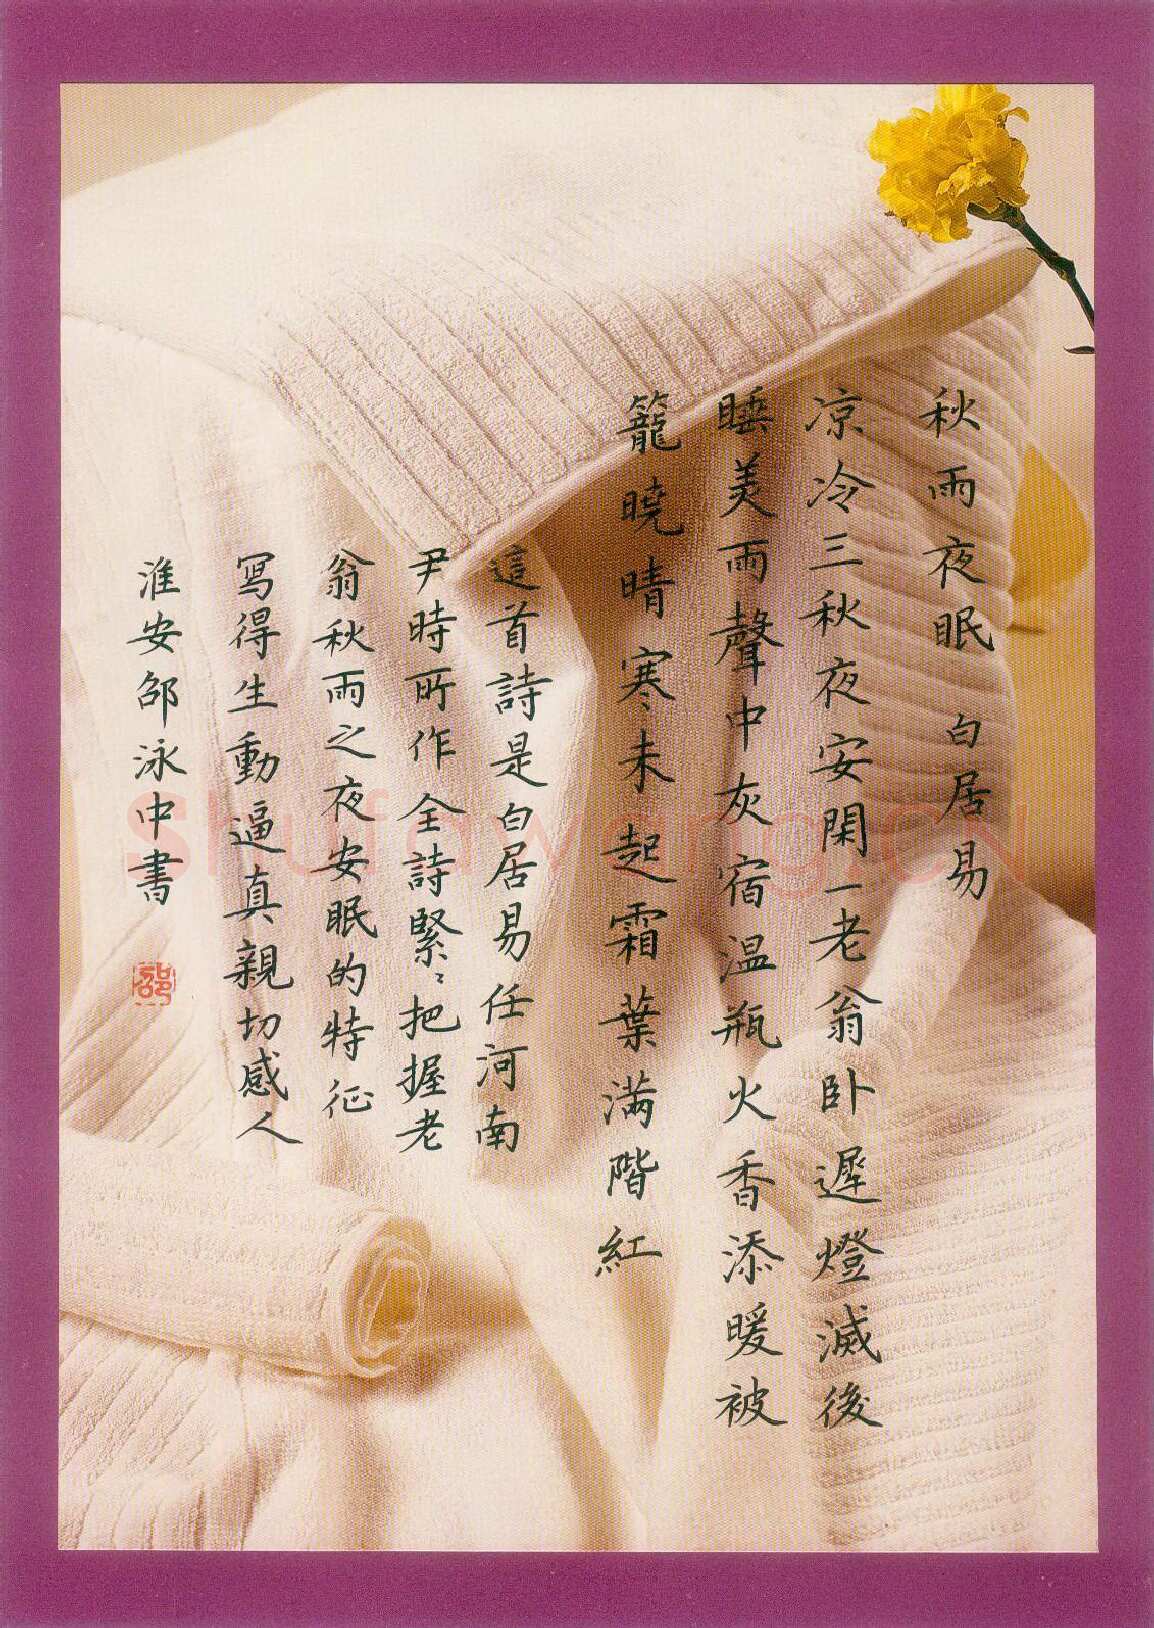 秋雨夜眠 白居易
凉冷三秋夜安閑一老翁卧遲燈滅後
睡美雨聲中灰宿温瓶火香添暖被
籠曉晴寒未起霜葉滿階紅
這首詩是白居易任河南
尹時所作全詩緊〻把握老
翁秋雨之夜安眠的特征
寫得生動逼真親切感人
淮安邵泳中書
邵
Shufawang.cn